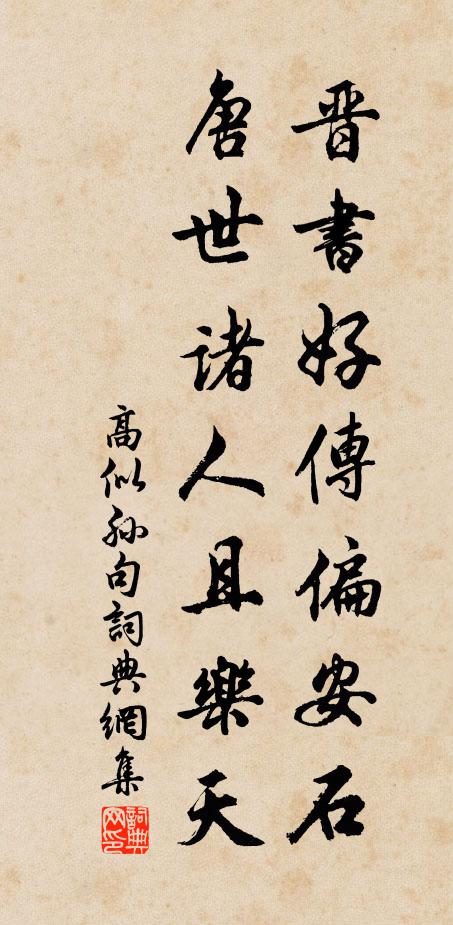 晋書好傳偏安石
唐世诸人且樂天
高似孫句詞典網集
詞典网印